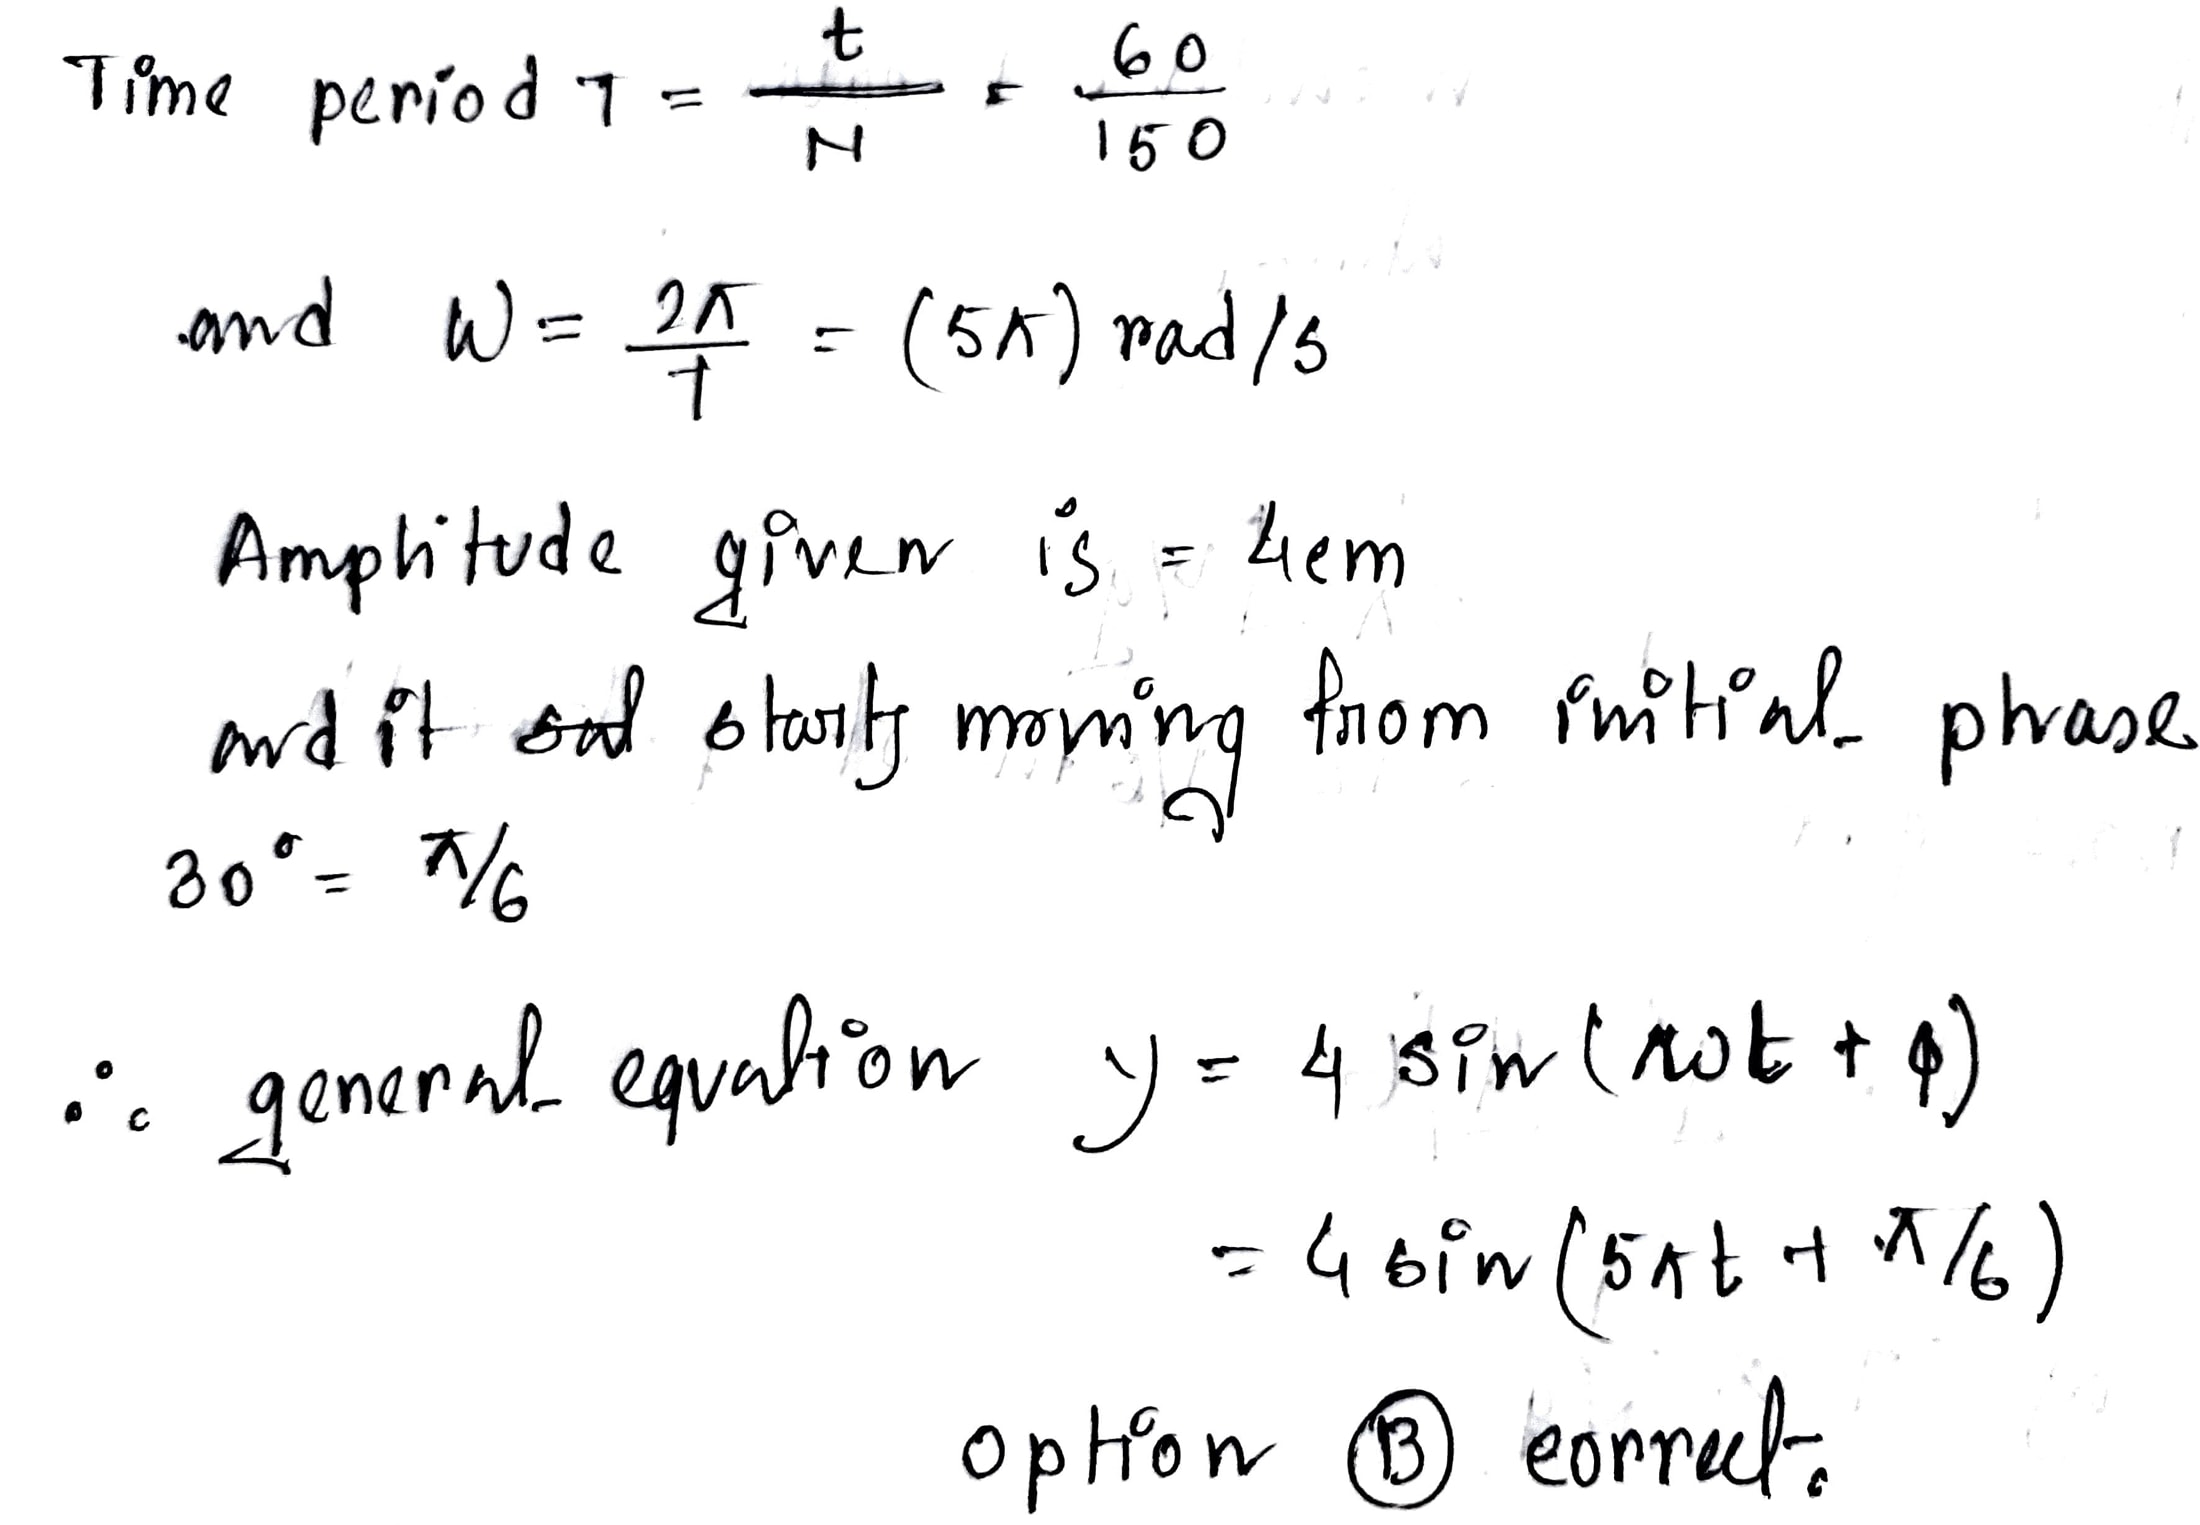 Time period T = t/N = 60/150
and W = 2π/T = (5π) rad/s
Amplitude given is = 4cm
and it starts moving from initial phrase
30° = π/6
∴ general equation y = 4 sin (ωt + φ)
= 4 sin (5πt + π/6)
option Ⓑ correct.